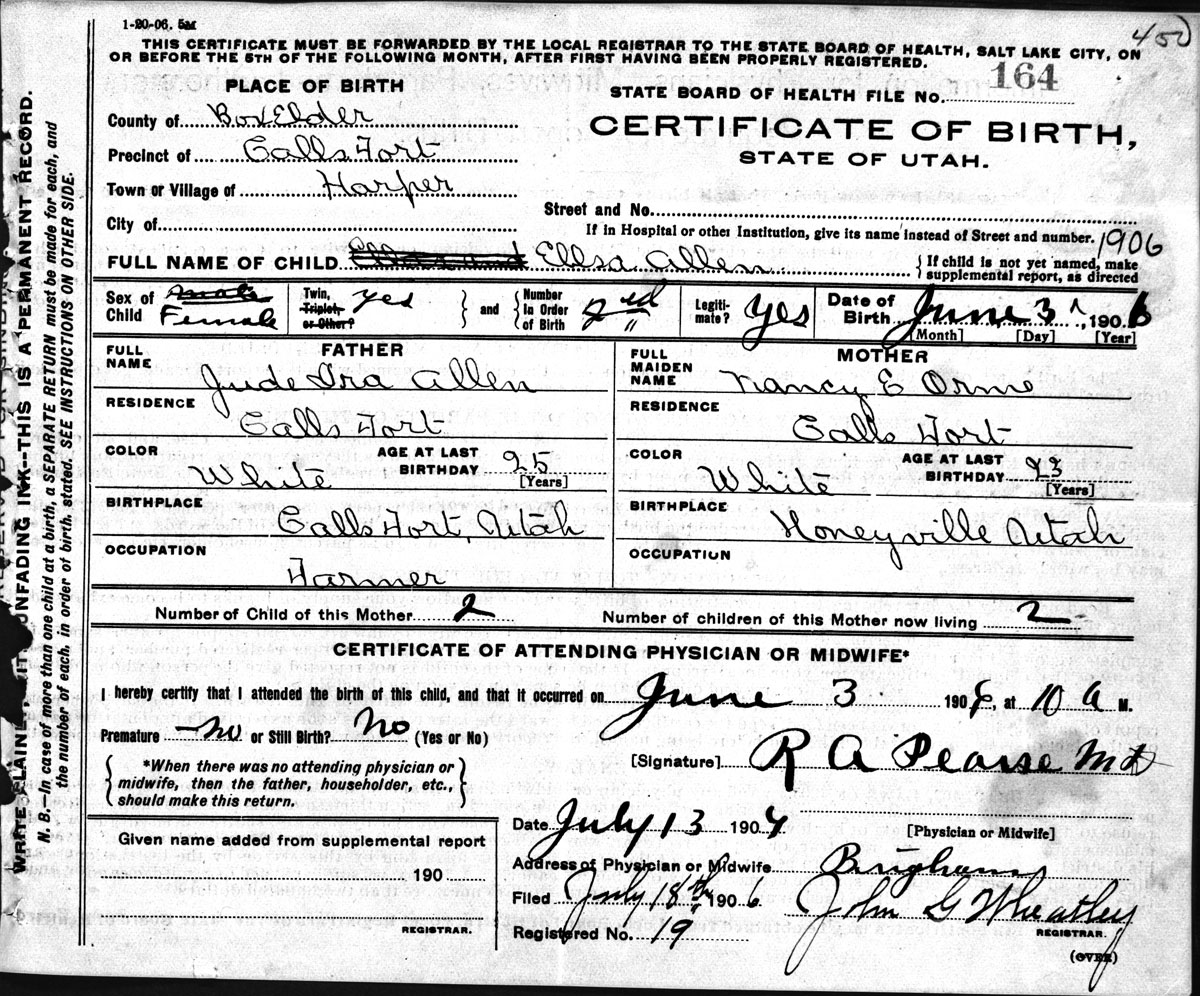 1-20-06. 5M
450
THIS CERTIFICATE MUST BE FORWARDED BY THE LOCAL REGISTRAR TO THE STATE BOARD OF HEALTH, SALT LAKE CITY, ON
OR BEFORE THE 5TH OF THE FOLLOWING MONTH, AFTER FIRST HAVING BEEN PROPERLY REGISTERED.
PLACE OF BIRTH
County of Box Elder
Precinct of Calls Fort
Town or Village of Harper
City of
STATE BOARD OF HEALTH FILE No. 164
CERTIFICATE OF BIRTH,
STATE OF UTAH.
Street and No.
If in Hospital or other Institution, give its name instead of Street and number.
1906
FULL NAME OF CHILD Ellsa Allen
If child is not yet named, make
supplemental report, as directed
Sex of Child Male Female
Twin, Triplet, or Other? yes
and
Number In Order of Birth 2nd "
Legiti- mate? Yes
Date of Birth June 3, 1906
[Month] [Day] [Year]
FATHER
FULL NAME Jude Ira Allen
RESIDENCE Calls Fort
COLOR White
AGE AT LAST BIRTHDAY 25
[Years]
BIRTHPLACE Calls Fort, Utah
OCCUPATION Farmer
MOTHER
FULL MAIDEN NAME Nancy E Orme
RESIDENCE Calls Fort
COLOR White
AGE AT LAST BIRTHDAY 23
[Years]
BIRTHPLACE Honeyville Utah
OCCUPATION
Number of Child of this Mother 2
Number of children of this Mother now living 2
CERTIFICATE OF ATTENDING PHYSICIAN OR MIDWIFE*
I hereby certify that I attended the birth of this child, and that it occurred on June 3 190 at 10 A M.
Premature no or Still Birth? No (Yes or No)
*When there was no attending physician or
midwife, then the father, householder, etc.,
should make this return.
[Signature] R A Pearse Md
Date July 13 190
[Physician or Midwife]
Given name added from supplemental report
190
REGISTRAR.
Address of Physician or Midwife Brigham
Filed July 18th 1906 John G Wheatley
REGISTRAR.
Registered No. 19
(OVER)
WRITE PLAINLY, WITH UNFADING INK--THIS IS A PERMANENT RECORD.
N. B.—In case of more than one child at a birth, a SEPARATE RETURN must be made for each, and
the number of each, in order of birth, stated. SEE INSTRUCTIONS ON OTHER SIDE.